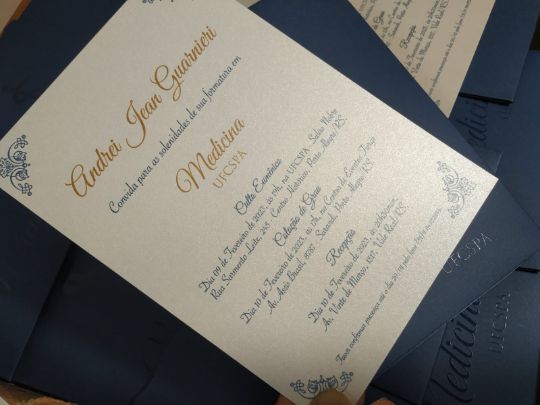 Andrei Jean Guarnieri
Convida para as solenidades de sua formatura em
Medicina
UFCSPA
Culto Ecumênico
Dia 09 de Fevereiro de 2023, às 19h, na UFCSPA - Salão Nobre
Rua Sarmento Leite, 245 - Centro Histórico, Porto Alegre/RS.
Colação de Grau
Dia 10 de Fevereiro de 2023, às 17h, no Centro de Eventos
Av. Assis Brasil, 8787 - Sarandi, Porto Alegre/RS.
Recepção
Dia 10 de Fevereiro de 2023, às
Av. Vinte de Março, Vale Real/RS.
Favor confirmar presença até o dia
Recepção
Medicina
UFCSPA
Medicina
UFCSPA